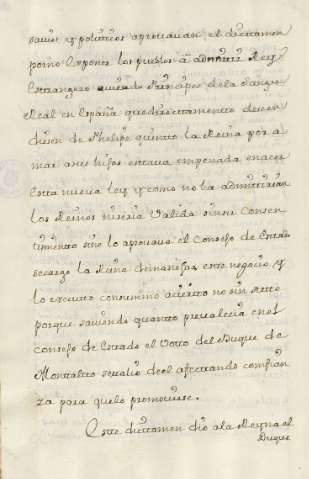 savios, y politicos aprovavan el dictamen
por no exponer los pueblos â admitir Rey
Estrangero aviendo Principes de la sangre
Real en España que directamente decen
diesen de Phelipe quinto la Reina por a
mar a sus hijos estava empeñada en hacer
esta nueva ley y como no la admitirian
los Reinos ni seria valida sin su consen
timiento sino lo aprovava el Consejo de Estado
se cargo la Reina de manejar este negocio, y
lo executo con sumo acierto no sin arte
porque saviendo quanto prevalecia en el
consejo de Estado el voto del Duque de
Montalto se valio de el afectando confian
za para que lo promoviese.
Este dictamen dio a la Reyna el
Duque